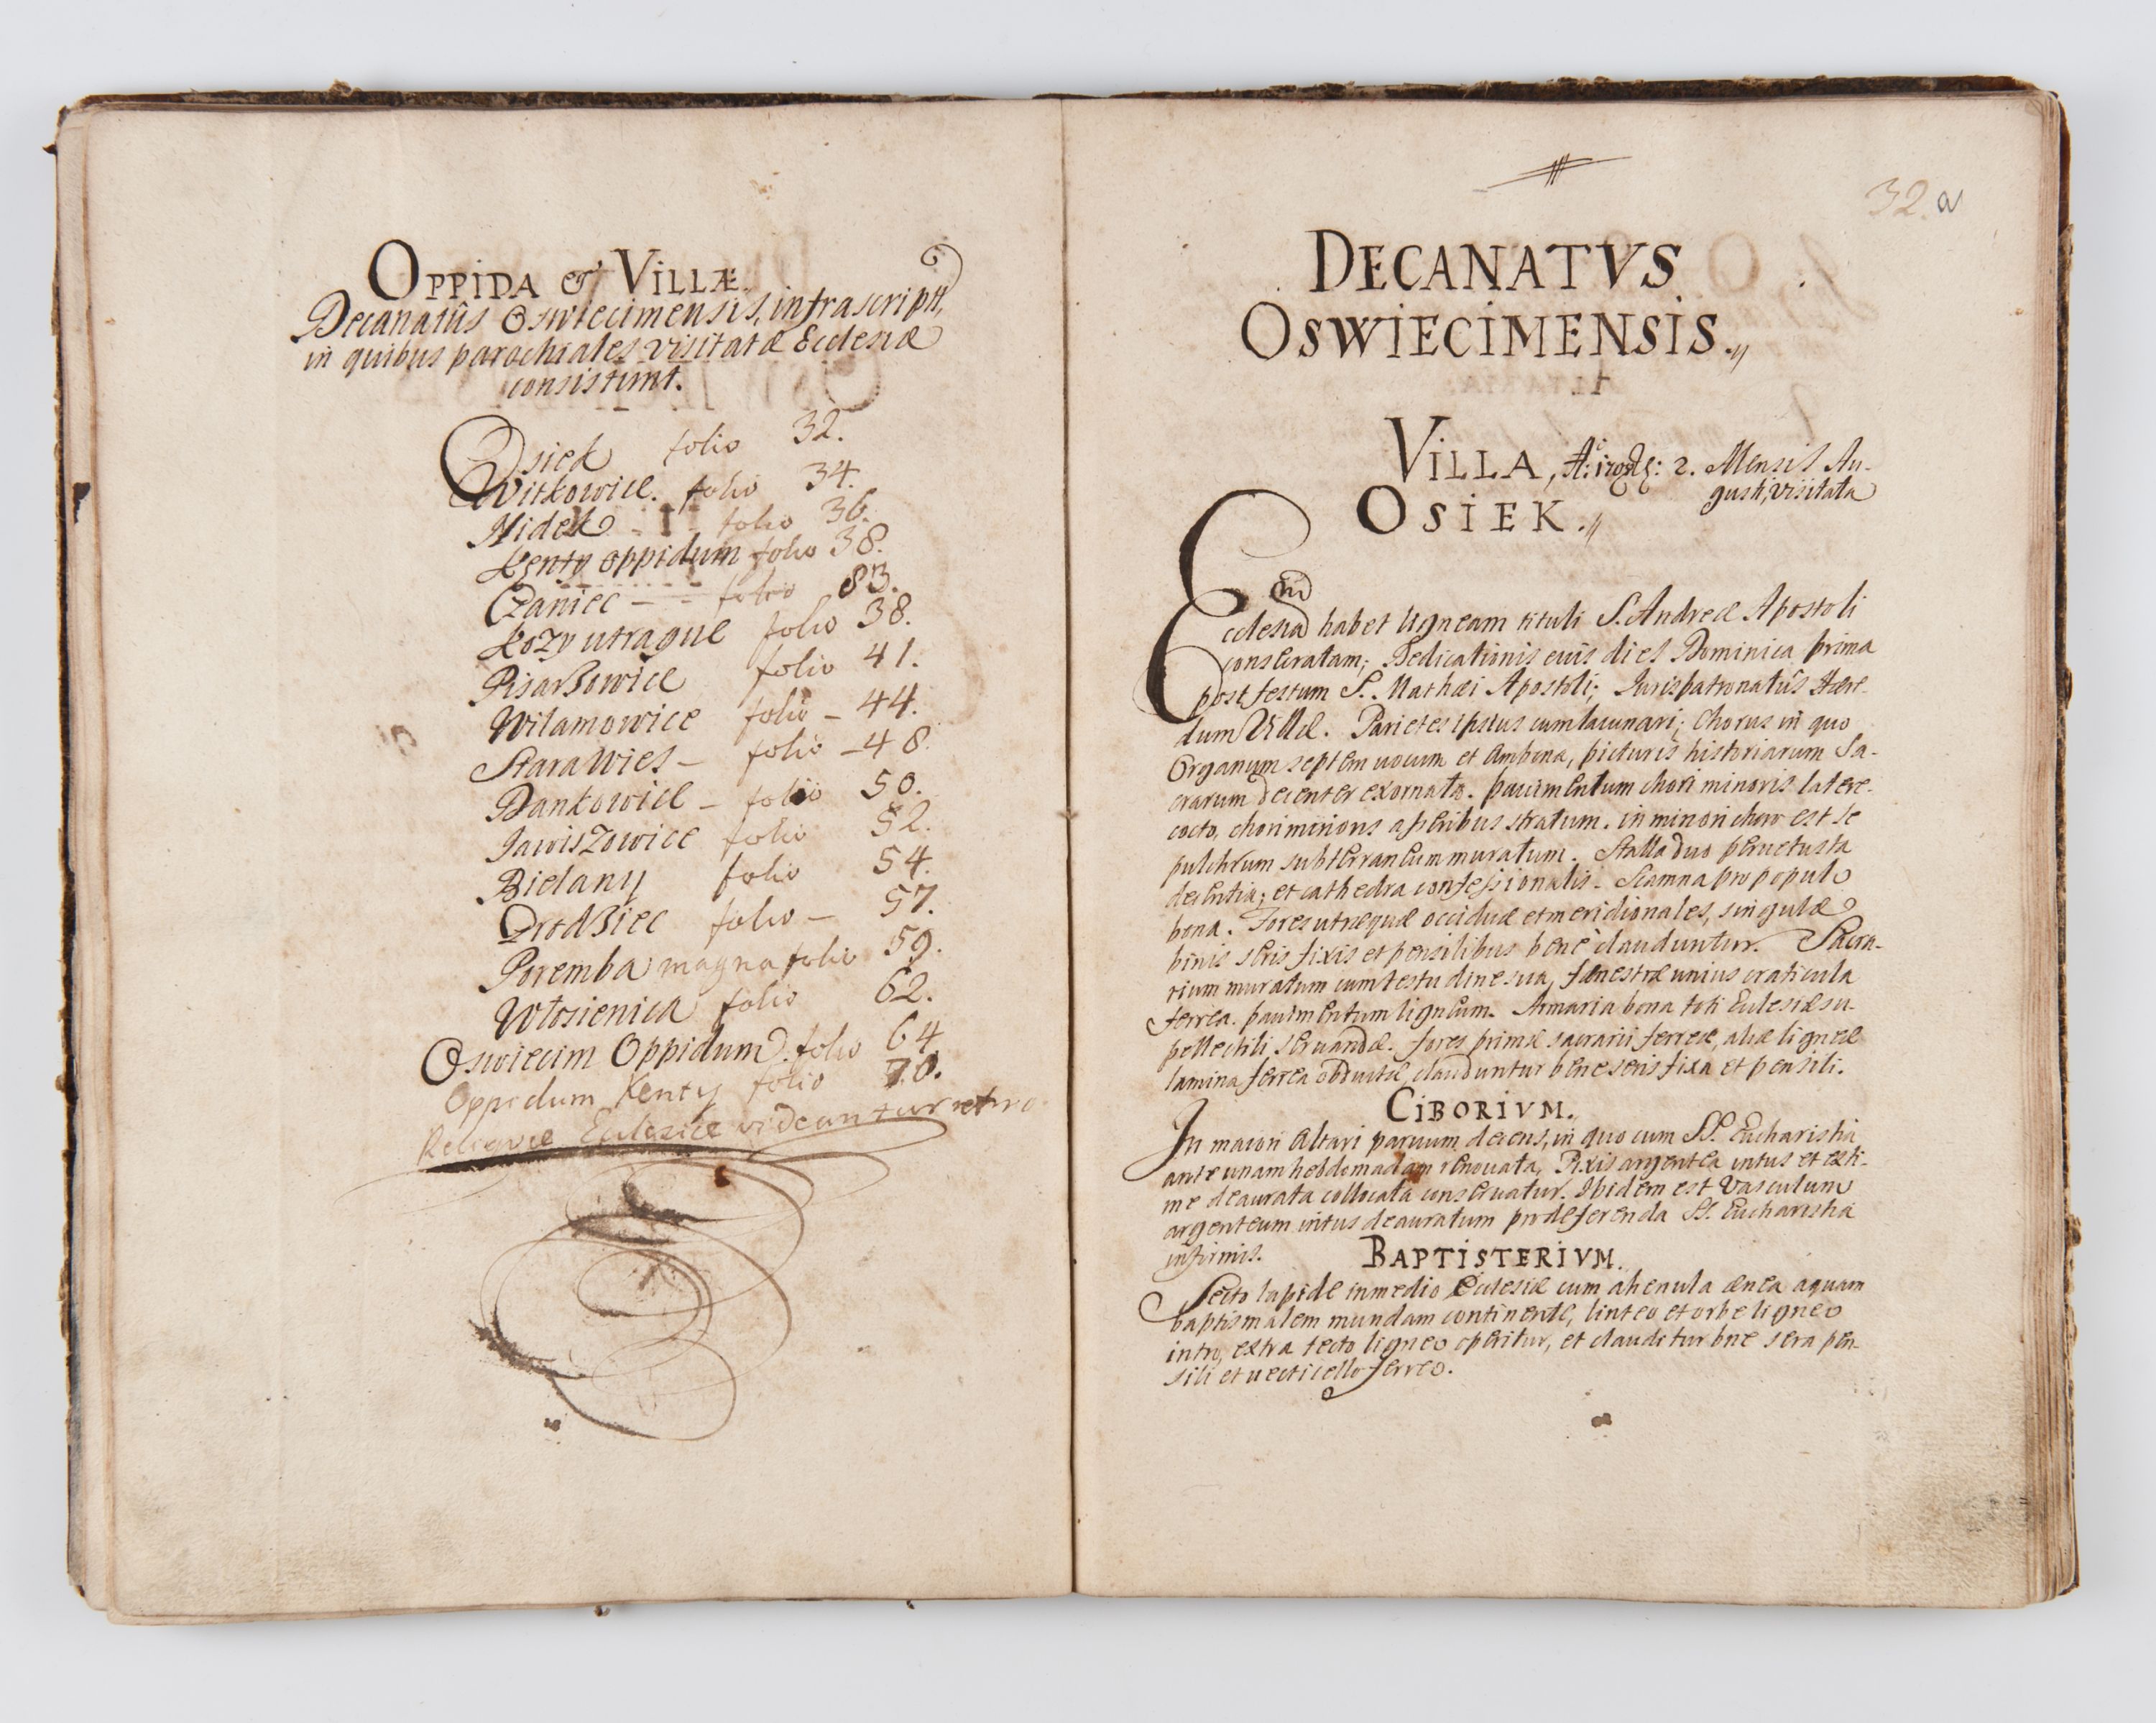 OPPIDA & VILLÆ
Decanatûs Oswiecimensis, infrascripti,
in quibus parochiales visitatæ Ecclesiæ
consistunt.
Osiek folio 32.
Witkowice. folio 34.
Nidek - - folio 36.
Kenty oppidum folio 38.
Czaniec - - folio 83.
Kozy utraque folio 38.
Pisarzowice folio 41.
Wilamowice folio - 44.
Stara Wies - folio - 48.
Dankowice - folio 50.
Jawiszowice folio 52.
Bielany folio 54.
folio - 57.
Poremba magna folio 59.
Włosienica folio 62.
Oswiecim Oppidum. folio 64
Oppidum Kenty folio 70.
Reliquæ Eclesiæ videantur retro
32. a
DECANATVS
OSWIECIMENSIS.
VILLA, 2. Mensis Au-
gusti, visitata
OSIEK.
Ecclesia habet ligneam tituli S. Andreæ Apostoli
consecratam; Dedicationis eius dies Dominica prima
post festum S. Mathæi Apostoli; Jurispatronatûs Hære-
dum Villæ. Parietes ipsius cum lacunari; Chorus in quo
Organum septem vocum et Ambona, picturis historiarum Sa-
crarum decenter exornata. pavimentum chori minoris latere
cocto, chori minoris asseribus stratum. in minori choro est se
pulchrum subterraneum muratum. Stalla duo pervetusta
decentia; et cathedra confessionalis. Scamna pro populo
bona. Fores utræquæ occiduæ et meridionales, singulæ
binis seris fixis et pensilibus bene clauduntur. Sacra-
rium muratum cum testudine sua, fenestræ unius craticula
ferrea. pavimentum ligneum. Armaria bona toti Eclesiæ su-
pellectili servandæ. fores primæ sacrarii ferreæ, aliæ ligneæ
lamina ferrea obductæ clauduntur bene seris fixa et pensili.
CIBORIVM.
In maiori Altari parvum decens, in quo cum SS. Eucharistia
ante unam hebdomadam renovata, Pixis argentea intus et exti-
me deaurata collocata conservatur. Ibidem est Vasculum
argenteum intus deauratum pro deferenda SS. Eucharistia
infirmis.
BAPTISTERIVM.
Secto lapide in medio Ecclesiæ cum ahenula ænea aquam
baptismalem mundam continente, linteo et orbe ligneo
intro, extra tecto ligneo operitur, et clauditur bne sera pen-
sili et vecticello ferreo.